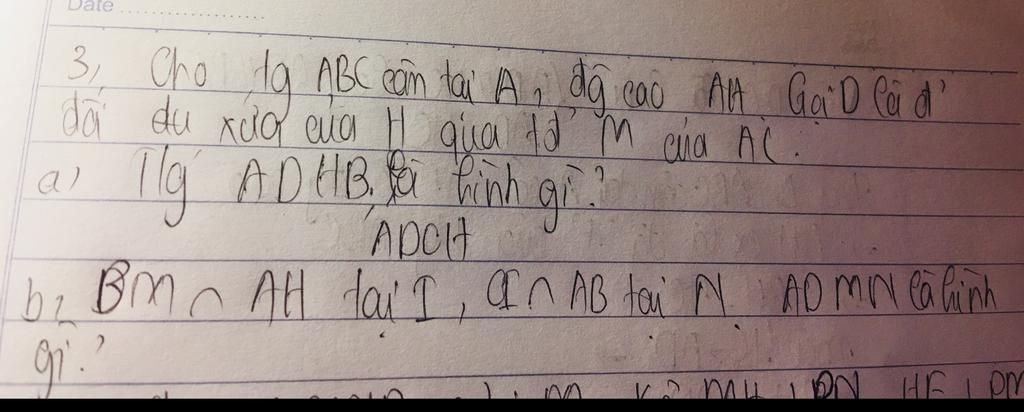 Date
3, Cho tg ABC cân tại A, đg cao AH Gọi D là đ'
đối xứng của H qua tđ' M của AC.
a) Tứg ADHB, là hình gì?
ADCH
b, BM ∩ AH tại I, CI ∩ AB tại N. ADMN là hình
gì?